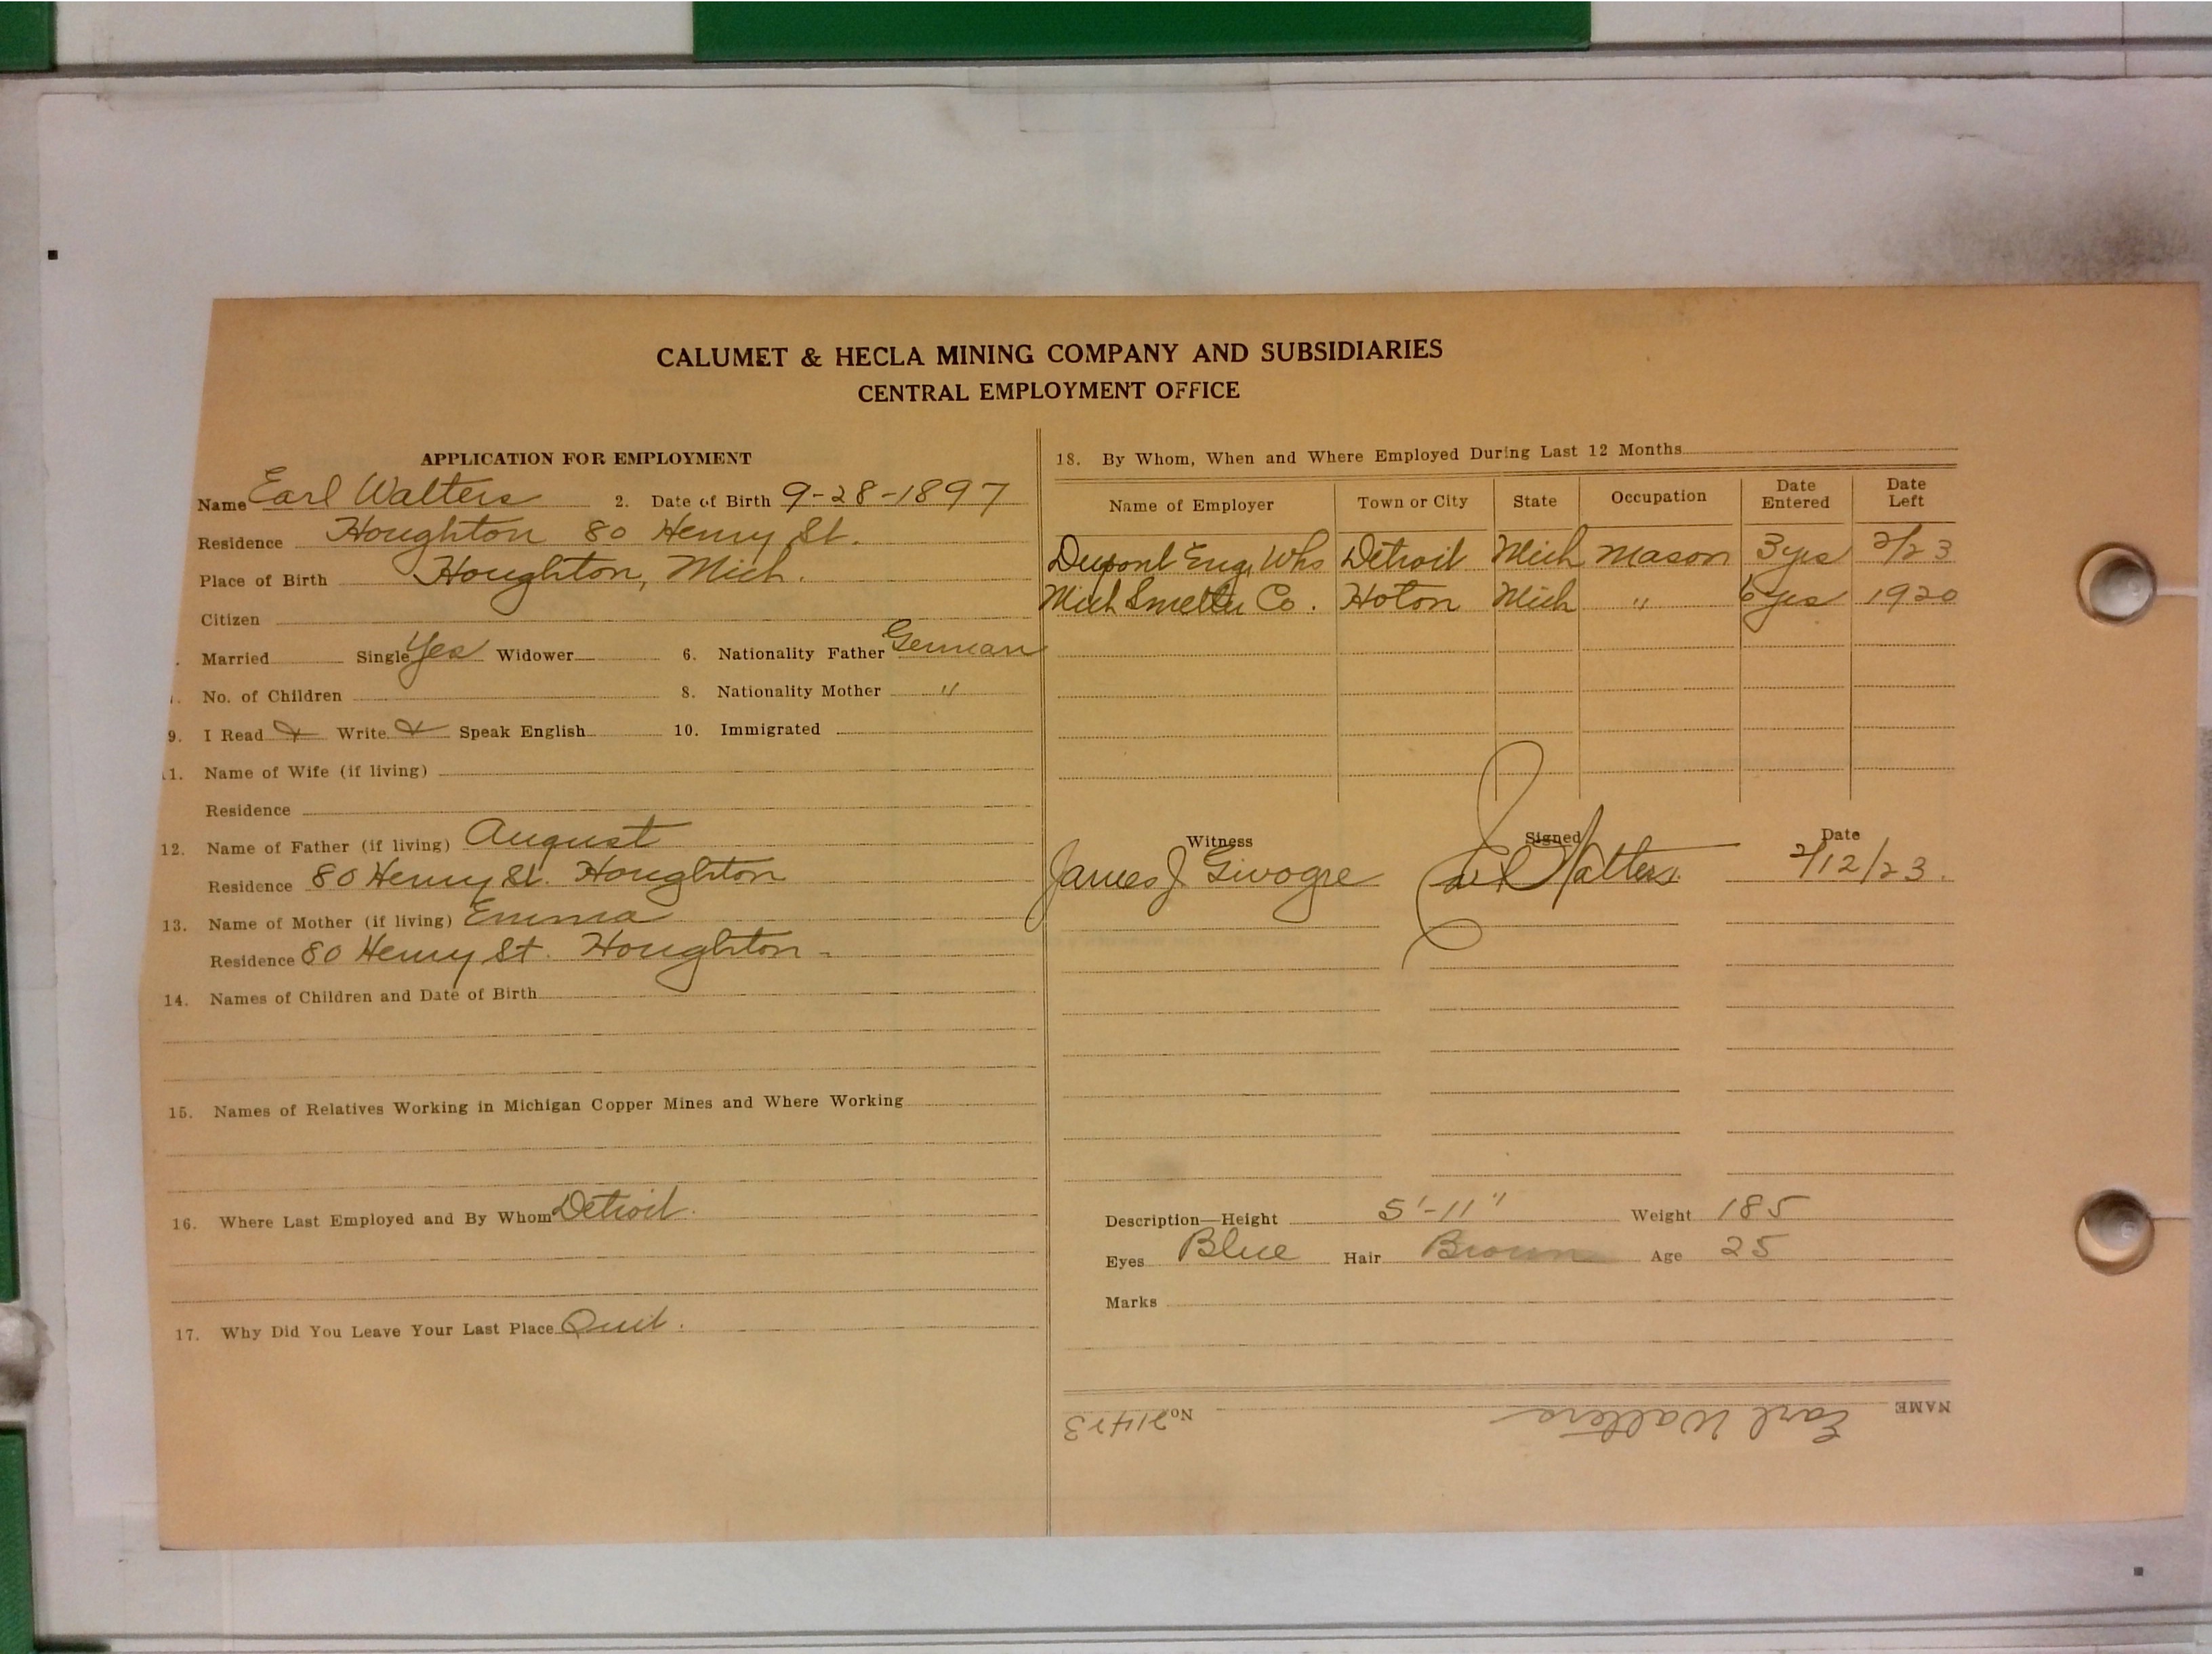 CALUMET & HECLA MINING COMPANY AND SUBSIDIARIES
CENTRAL EMPLOYMENT OFFICE
APPLICATION FOR EMPLOYMENT
Name Earl Walters 2. Date of Birth 9-28-1897
Residence Houghton 80 Henry St.
Place of Birth Houghton, Mich.
Citizen
Married Single Yes Widower 6. Nationality Father German
No. of Children 8. Nationality Mother "
9. I Read Write Speak English 10. Immigrated
11. Name of Wife (if living)
Residence
12. Name of Father (if living) August
Residence 80 Henry St. Houghton
13. Name of Mother (if living) Emma
Residence 80 Henry St. Houghton -
14. Names of Children and Date of Birth
15. Names of Relatives Working in Michigan Copper Mines and Where Working
16. Where Last Employed and By Whom Detroit.
17. Why Did You Leave Your Last Place Quit.
18. By Whom, When and Where Employed During Last 12 Months
Name of Employer Town or City State Occupation Date Entered Date Left
Dupont Eng. Detroit Mich Mason 3 yrs 2/23
Mich Smelter Co. Hoton Mich " 6 yrs 1920
Witness Signed Date
James J Earl Walters 2/12/23.
Description—Height 5'-11" Weight 185
Eyes Blue Hair Brown Age 25
Marks
NAME Earl Walters No. 21423